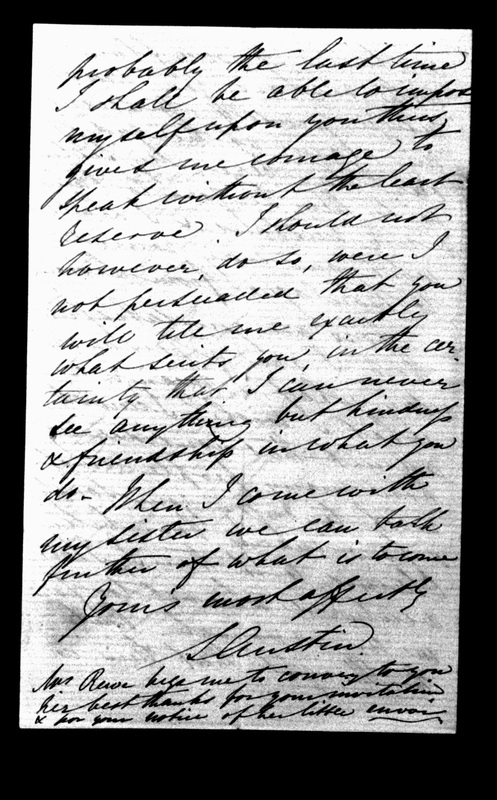 probably the last time
I shall be able to impose
myself upon you thus,
gives me courage to
speak without the least
reserve. I should not
however, do so, were I
not persuaded that you
will tell me exactly
what suits you, in the cer-
tainty that I can never
see anything but kindness
& friendship in what you
do. When I come with
my sister we can talk
further of what is to come
Yours most affectly
S Austin
Mrs Reeve begs me to convey to you
her best thanks for your invitation
& for your notice of her little envoi